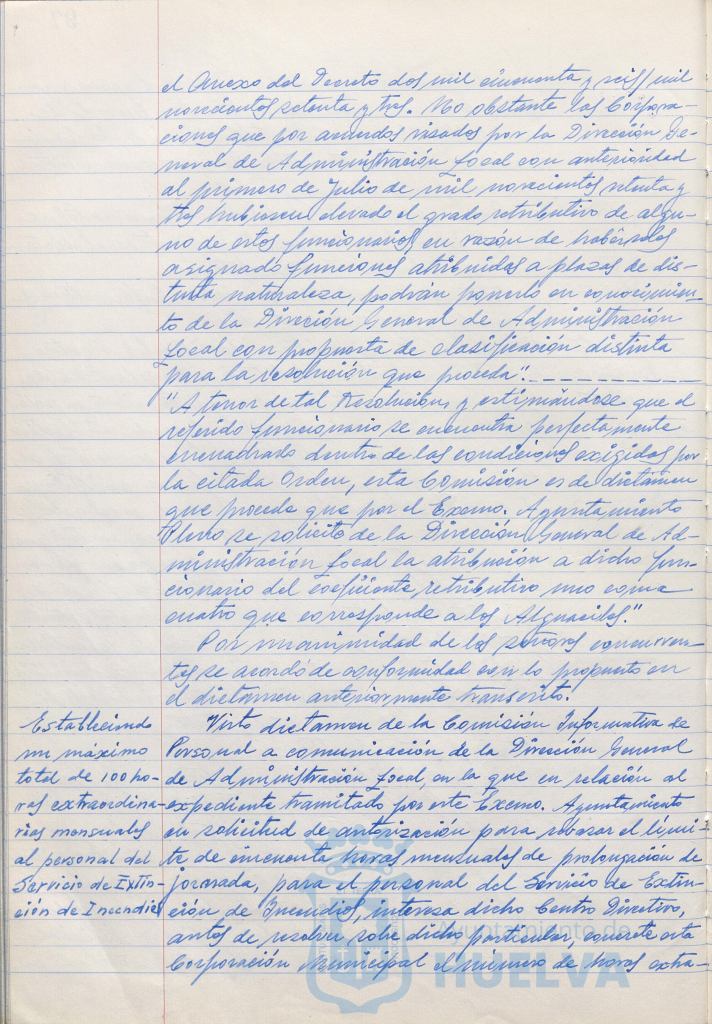 el Anexo del Decreto dos mil cincuenta y seis/mil
novecientos setenta y tres. No obstante las Corpora-
ciones que por acuerdos visados por la Dirección Ge-
neral de Administración Local con anterioridad
al primero de Julio de mil novecientos setenta y
tres hubiesen elevado el grado retributivo de algu-
no de estos funcionarios, en razón de habérseles
asignado funciones atribuidas a plazas de dis-
tinta naturaleza, podrán ponerlo en conocimien-
to de la Dirección General de Administración
Local con propuesta de clasificación distinta
para la resolución que proceda".
"A tenor de tal Resolución, y estimándose que el
referido funcionario se encuentra perfectamente
encuadrado dentro de las condiciones exigidas por
la citada Orden, esta Comisión es de dictamen
que procede que por el Excmo. Ayuntamiento
Pleno se solicite de la Dirección General de Ad-
ministración Local la atribución a dicho fun-
cionario del coeficiente retributivo uno coma
cuatro que corresponde a los Alguaciles."
Por unanimidad de los señores concurren-
tes se acordó de conformidad con lo propuesto en
el dictamen anteriormente transcrito.
Estableciendo
un máximo
total de 100 ho-
ras extraordina-
rias mensuales
al personal del
Servicio de Extin-
ción de Incendios
Visto dictamen de la Comisión Informativa de
Personal a comunicación de la Dirección General
de Administración Local, en la que en relación al
expediente tramitado por este Excmo. Ayuntamiento
en solicitud de autorización para rebasar el lími-
te de cincuenta horas mensuales de prolongación de
jornada, para el personal del Servicio de Extin-
ción de Incendios, interesa dicho Centro Directivo,
antes de resolver sobre dicho particular, concrete esta
Corporación Municipal el número de horas extra-
Ayuntamiento de
HUELVA